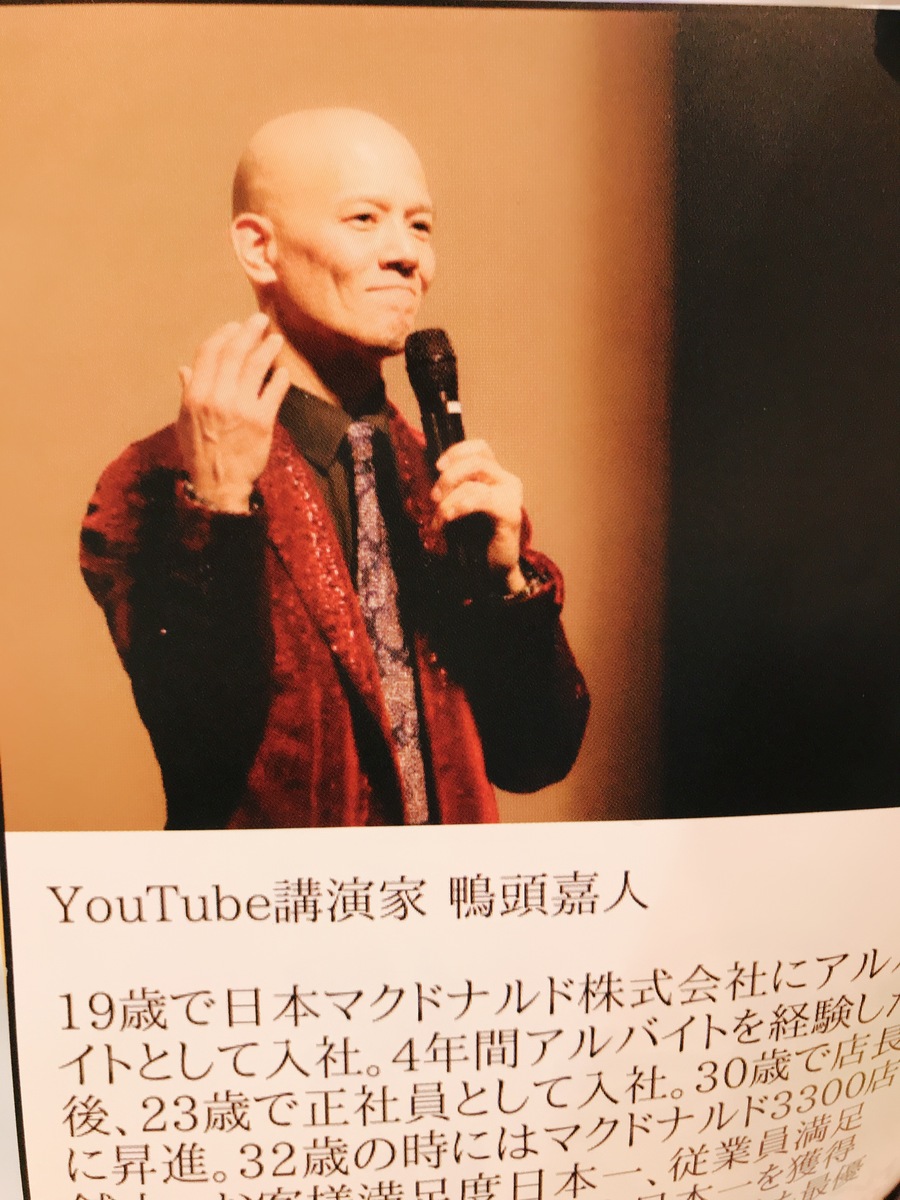 YouTube講演家 鴨頭嘉人
19歳で日本マクドナルド株式会社にアル
イトとして入社。4年間アルバイトを経験した
後、23歳で正社員として入社。30歳で店長
に昇進。32歳の時にはマクドナルド3300店
お客様満足度日本一、従業員満足
日本一を獲得
最優